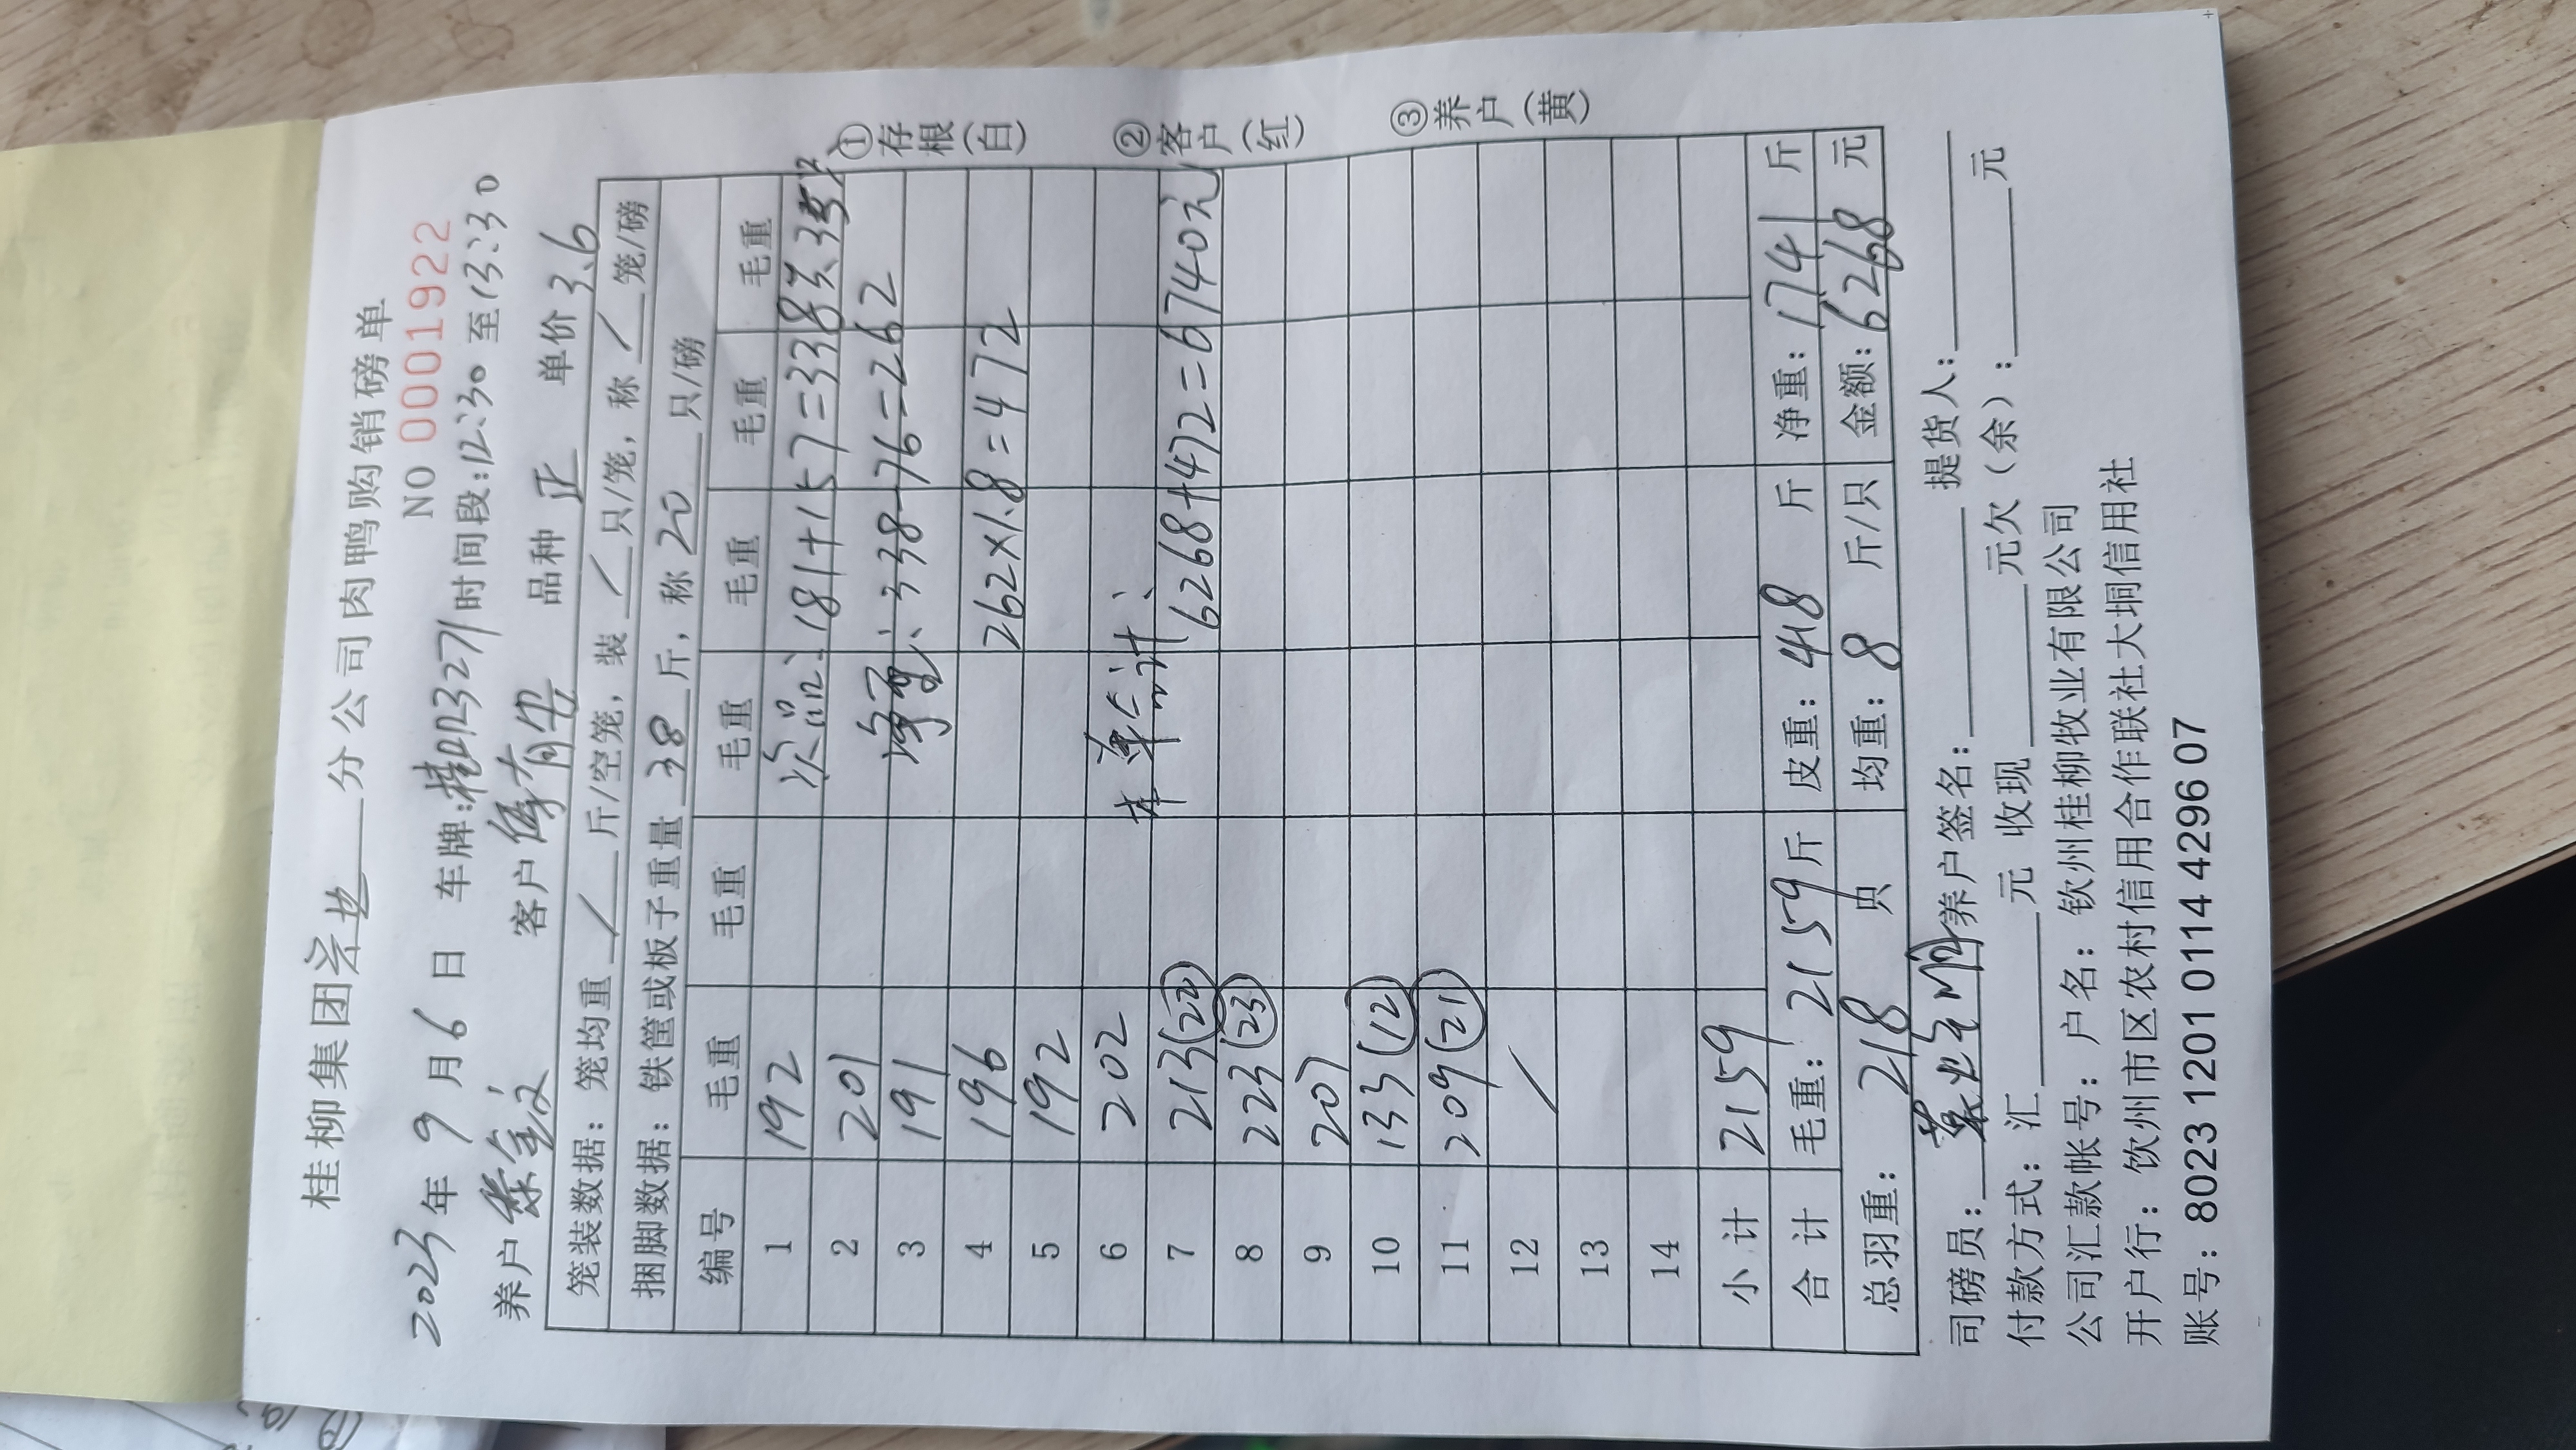 桂柳集团 分公司肉鸭购销磅单
NO 0001922
2023年9月6日 车牌:桂 时间段:12:30 至13:30
养户 客户 品种 正 单价 3.6
笼装数据: 笼均重 / 斤/空笼, 装 / 只/笼, 称 / 笼/磅
捆脚数据: 铁筐或板子重量 38 斤, 称 20 只/磅
编号 毛重 毛重 毛重 毛重 毛重 毛重
1 192 次品: 181+157=338
2 201
3 191 净重: 338-76=262
4 196 262×1.8=472
5 192
6 202 # 总计:
7 213(22) 6268+472=6740元
8 223(23)
9 207
10 133(12)
11 209(21)
12 /
13
14
小计 2159
合计 毛重: 2159斤 皮重: 418 斤 净重: 1741 斤
总羽重: 218 只 均重: 8 斤/只 金额: 6268 元
①存根(白)
②客户(红)
③养户(黄)
司磅员: 养户签名: 提货人:
付款方式: 汇 元 收现 元欠(余): 元
公司汇款帐号: 户名: 钦州桂柳牧业有限公司
开户行: 钦州市区农村信用合作联社大垌信用社
账号: 8023 1201 0114 4296 07